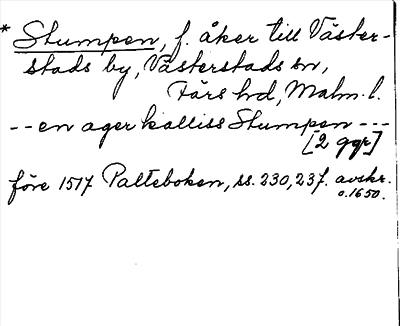 * Stumpen, f. åker till Väster-
stads by, Västerstads sn,
Färs hd, Malm. l.
-- en ager kalliss Stumpen ---
[2 ggr]
före 1517 Palteboken, ss. 230, 237. avskr.
o. 1650.